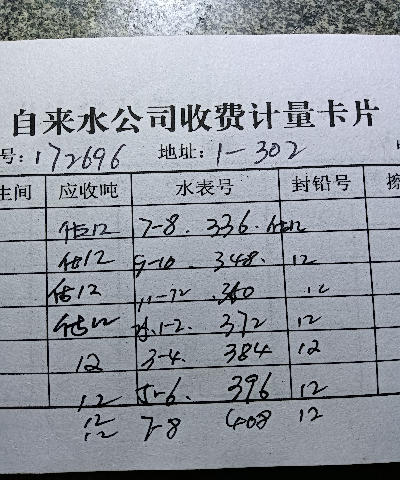 自来水公司收费计量卡片
号:172696 地址:1-302
生间 应收吨 水表号 封铅号
估12 7-8. 336. 估12
估12 9-10. 348. 12
估12 11-12 360 12
估12 1-2. 372 12
12 3-4. 384 12
12 5-6. 396 12
12
12 7-8 408 12